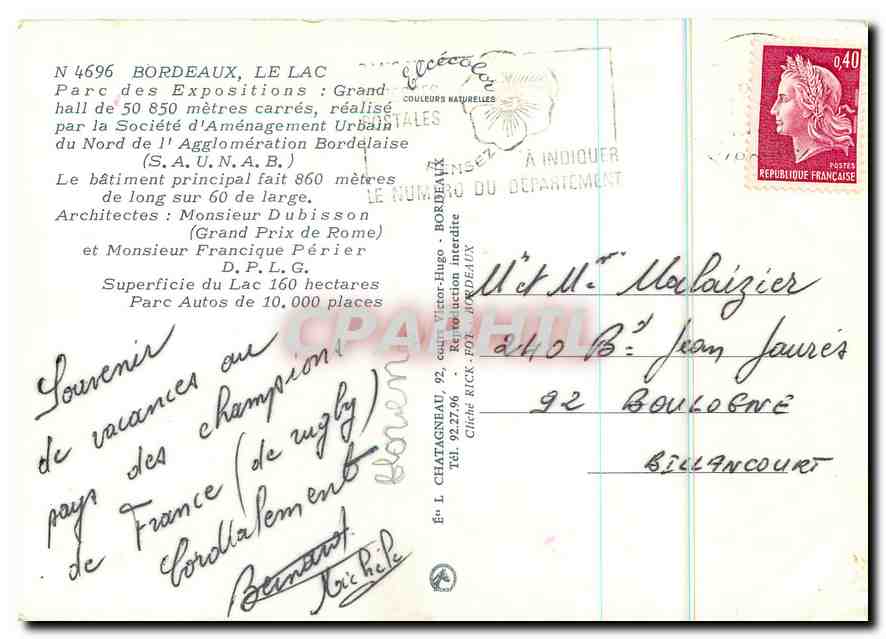 N 4696 BORDEAUX, LE LAC
Parc des Expositions : Grand
hall de 50 850 mètres carrés, réalisé
par la Société d'Aménagement Urbain
du Nord de l' Agglomération Bordelaise
(S. A. U. N. A. B.)
Le bâtiment principal fait 860 mètres
de long sur 60 de large.
Architectes : Monsieur Dubisson
(Grand Prix de Rome)
et Monsieur Francique Périer
D. P. L. G.
Superficie du Lac 160 hectares
Parc Autos de 10.000 places
Souvenir
de vacances au
pays des champions
de France (de rugby)
Cordialement
Bernard
Michèle
COULEURS NATURELLES
POSTALES
PENSEZ À INDIQUER
LE NUMÉRO DU DÉPARTEMENT
CPARHIL
Éts L CHATAGNEAU, 92, cours Victor-Hugo - BORDEAUX
Tél. 92.27.96 - Reproduction interdite
Cliché RICK - FOT - BORDEAUX
0,40
POSTES
REPUBLIQUE FRANÇAISE
Mr et Mme Malaizier
240 Bd Jean Jaurés
92 BOULOGNE
BILLANCOURT